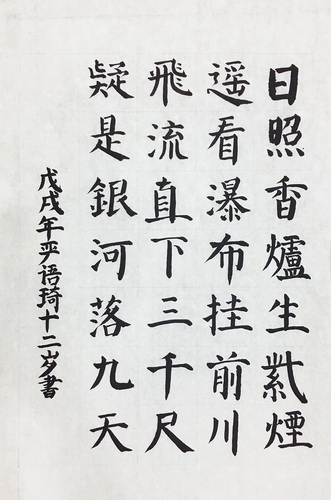 日照香爐生紫煙
遥看瀑布挂前川
飛流直下三千尺
疑是銀河落九天
戊戌年乎语琦十二岁書